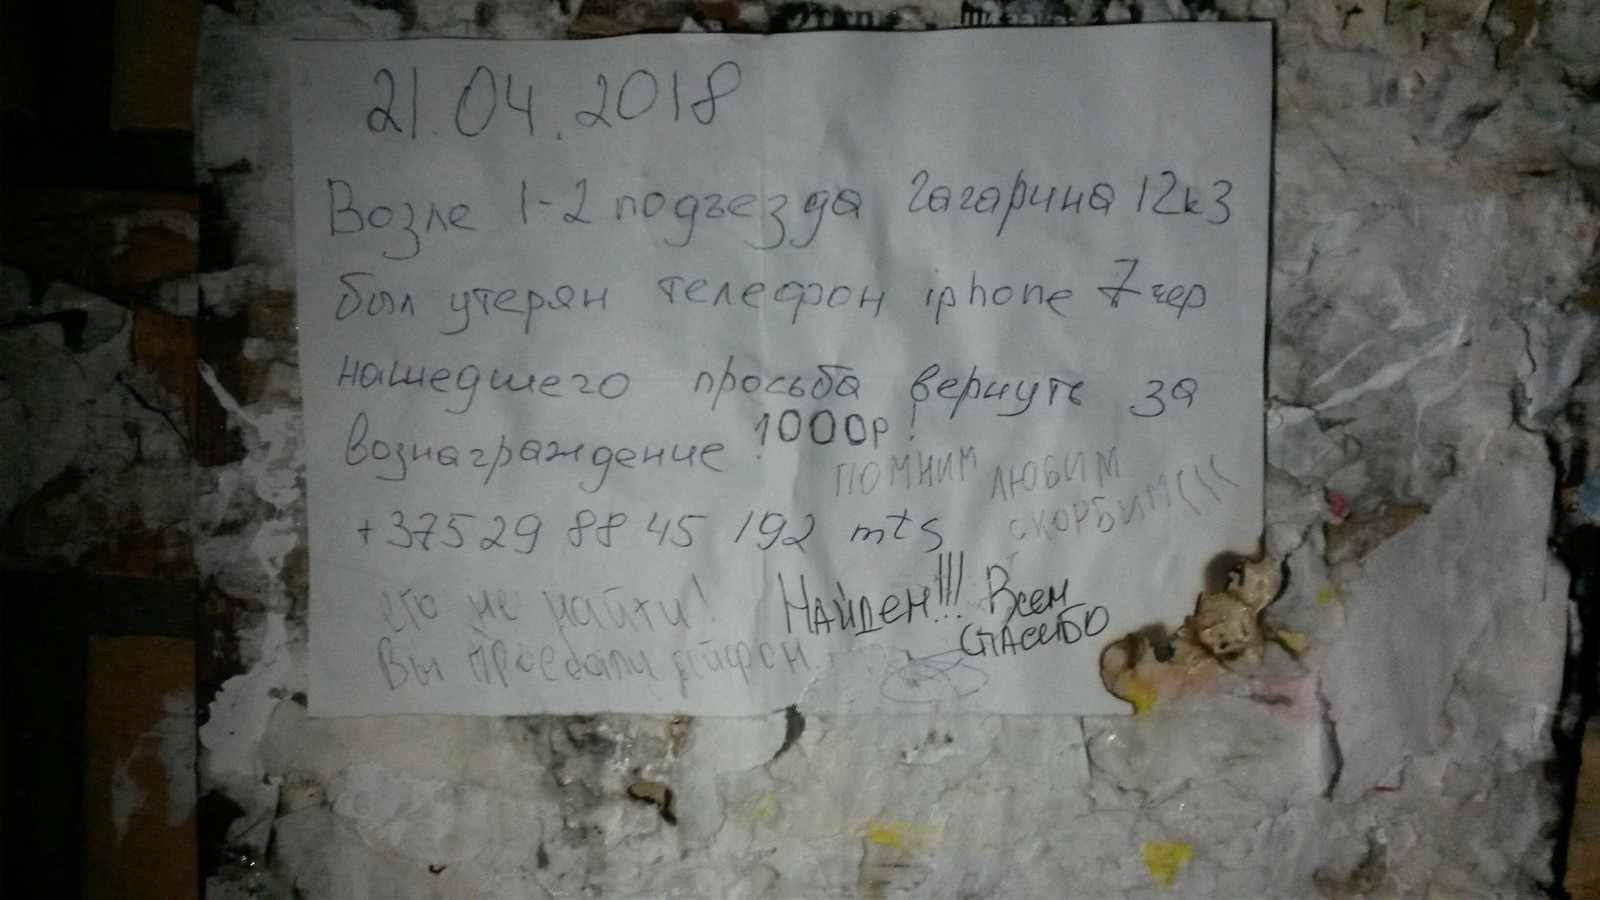 21.04.2018
Возле 1-2 подъезда Гагарина 12к3
был утерян телефон iphone 7 чер
нашедшего просьба вернуть за
вознаграждение 1000р!
ПОМНИМ ЛЮБИМ
СКОРБИМ(((
+37529 88 45 192 mts
его не найти!
НАЙДЕН!!! Всем
СПАСИБО
Вы проебали айфон.